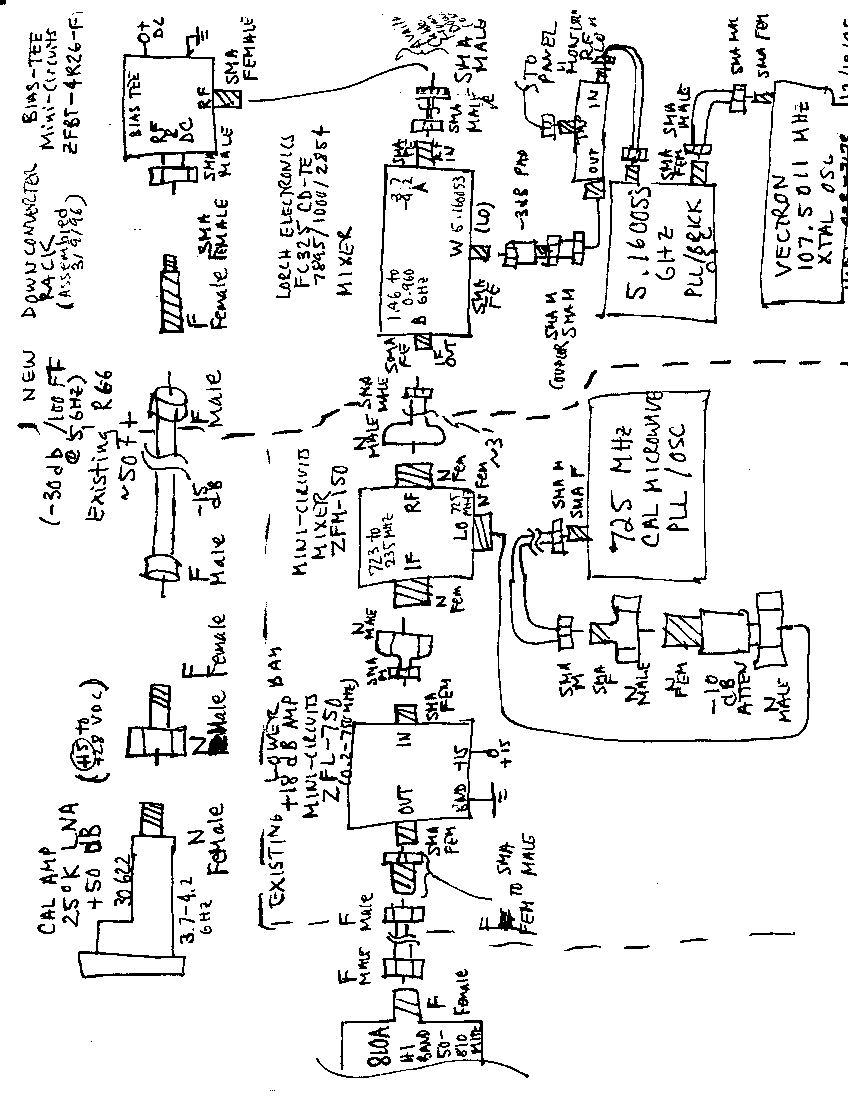 CAL AMP
25°K LNA
+50 dB
30622
3.7-4.2
GHz
N
Female
(+15 to
+28 VDC)
N Male
F
Female
F
Male
-15
dB
F
Male
(-30db/100 FT
@ 5.1 GHz)
Existing RG6
~50 ft
NEW
DOWNCONVERTER
RACK
(Assembled
3/9/96)
F
Female
SMA
Female
BIAS-TEE
Mini-Circuits
ZFBT-4R2G-FT
BIAS TEE
RF
&
DC
RF
DC
SMA
MALE
SMA
FEMALE
810A
HI
BAND
50-
810
MHz
F
Female
F
MALE
F
Male
F
FEM TO SMA
MALE
EXISTING LOWER BAY
+18 dB AMP
MINI-CIRCUITS
ZFL-750
(0.2-750 MHz)
OUT
IN
GND
+15
+15
SMA
FEM
SMA
FEM
SMA
M
N
MALE
MINI-CIRCUITS
MIXER
ZFM-150
723 to
235 MHz
IF
RF
LO
725
MHz
N
Fem
N
Fem
N Fem
N
MALE
SMA
MALE
~3'
LORCH ELECTRONICS
FC325 CD-TE
7895/1000/2854
MIXER
1.46 to
0.960
GHz
B
3.7-
4.2
A
W 5.160053
(LO)
SMA
FE
IF
OUT
SMA
FE
RF
IN
SMA
FE
SMA
MALE
SMA
MALE
-3dB PAD
COUPLER SMA M
SMA M
TO
PANEL
RF
MONITOR
IN
OUT
5.160053
GHz
PLL/BRICK
SMA
FEM
SMA
MALE
SMA MAL
SMA FEM
VECTRON
107.5011 MHz
XTAL OSC
725 MHz
CAL MICROWAVE
PLL/OSC
SMA M
SMA F
SMA
M
SMA
F
N
MALE
N
FEM
-10
dB
ATTEN
N
MALE